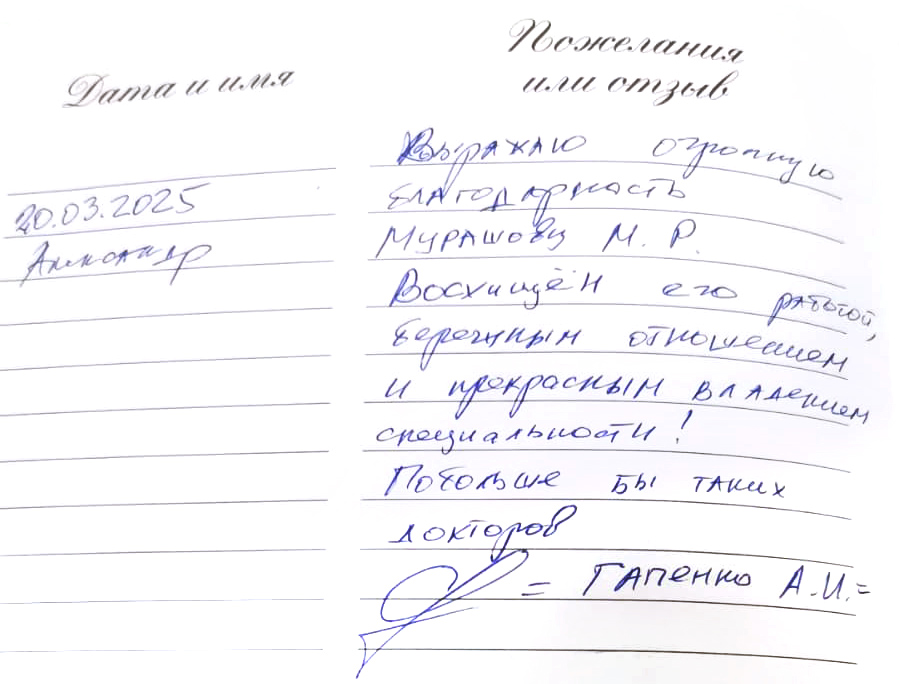 Дата и имя
Пожелания
или отзыв
20.03.2025
Александр
Выражаю огромную
благодарность
Мурашову М. Р.
Восхищён его работой,
бережным отношением
и прекрасным владением
специальности!
Побольше бы таких
докторов
= Гапенко А.И. =